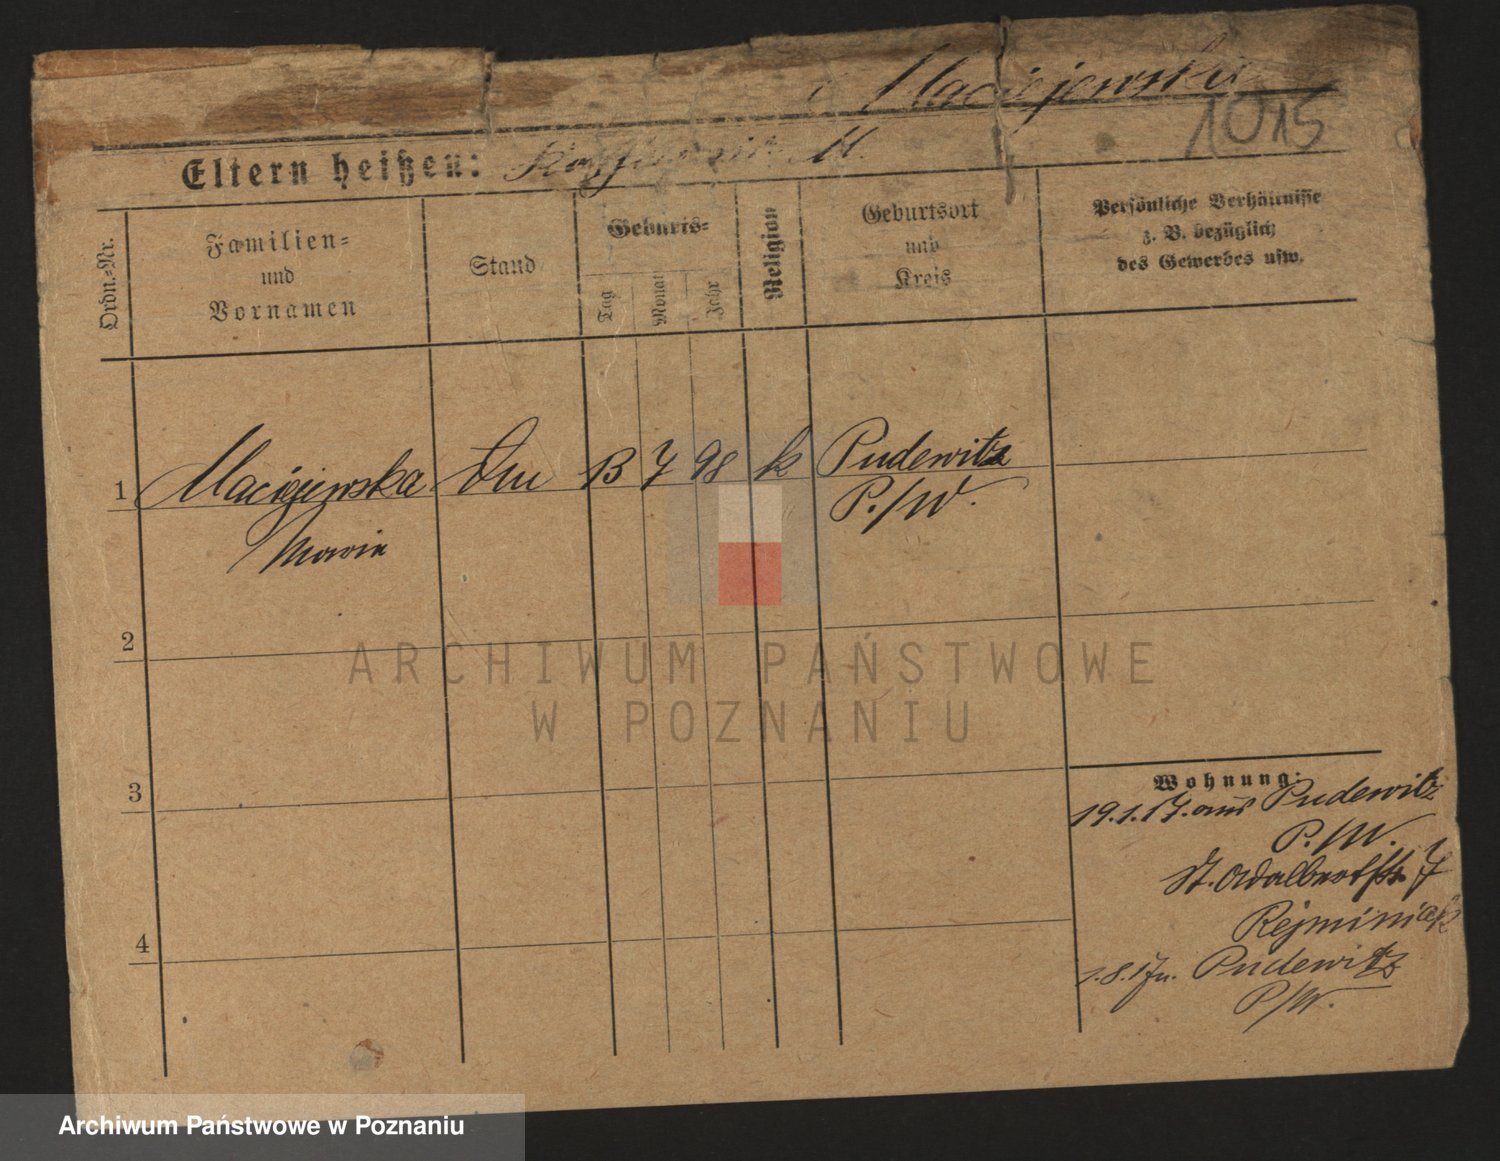 Maciejewski
1015
Eltern heißen: M.
Ordn.-Nr.
Familien-
und
Vornamen
Stand
Geburts-
Tag
Monat
Jahr
Religion
Geburtsort
und
Kreis
Persönliche Verhältnisse
z. B. bezüglich
des Gewerbes usw.
1 Maciejewska 13 7 98 k Pudewitz
Maria P./W.
2
3
4
Wohnung:
19.1.17. aus Pudewitz
P./W.
St. Adalbertstr. 7
Rejminiak
1.8.17 n. Pudewitz
P/W.
ARCHIWUM PAŃSTWOWE
W POZNANIU
Archiwum Państwowe w Poznaniu